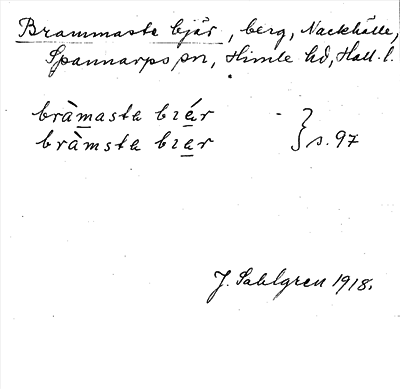 Brammaste bjär, berg, Nackhälle,
Spannarps sn, Himle hd, Hall. l.
bràmasta biár
bràmsta biar } s. 97
J. Sahlgren 1918.